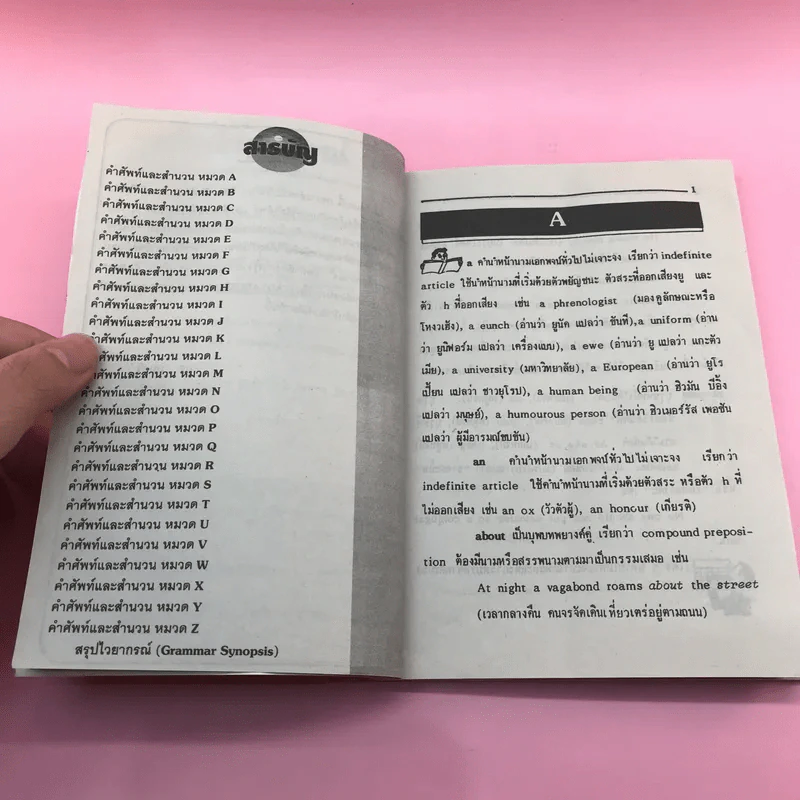 สารบัญ
คำศัพท์และสำนวน หมวด A
คำศัพท์และสำนวน หมวด B
คำศัพท์และสำนวน หมวด C
คำศัพท์และสำนวน หมวด D
คำศัพท์และสำนวน หมวด E
คำศัพท์และสำนวน หมวด F
คำศัพท์และสำนวน หมวด G
คำศัพท์และสำนวน หมวด H
คำศัพท์และสำนวน หมวด I
คำศัพท์และสำนวน หมวด J
คำศัพท์และสำนวน หมวด K
คำศัพท์และสำนวน หมวด L
คำศัพท์และสำนวน หมวด M
คำศัพท์และสำนวน หมวด N
คำศัพท์และสำนวน หมวด O
คำศัพท์และสำนวน หมวด P
คำศัพท์และสำนวน หมวด Q
คำศัพท์และสำนวน หมวด R
คำศัพท์และสำนวน หมวด S
คำศัพท์และสำนวน หมวด T
คำศัพท์และสำนวน หมวด U
คำศัพท์และสำนวน หมวด V
คำศัพท์และสำนวน หมวด W
คำศัพท์และสำนวน หมวด X
คำศัพท์และสำนวน หมวด Y
คำศัพท์และสำนวน หมวด Z
สรุปไวยากรณ์ (Grammar Synopsis)
1
A
a คำนำหน้านามเอกพจน์ทั่วไปไม่เจาะจง เรียกว่า indefinite
article ใช้นำหน้านามที่เริ่มด้วยตัวพยัญชนะ ตัวสระที่ออกเสียงยู และ
ตัว h ที่ออกเสียง เช่น a phrenologist (มองดูลักษณะหรือ
โหงวเฮ้ง), a eunch (อ่านว่า ยูนัค แปลว่า ขันที), a uniform (อ่าน
ว่า ยูนิฟอร์ม แปลว่า เครื่องแบบ), a ewe (อ่านว่า ยู แปลว่า แกะตัว
เมีย), a university (มหาวิทยาลัย), a European (อ่านว่า ยูโร
เปี้ยน แปลว่า ชาวยุโรป), a human being (อ่านว่า ฮิวมัน บีอิ้ง
แปลว่า มนุษย์), a humourous person (อ่านว่า ฮิวเมอร์รัส เพอซัน
แปลว่า ผู้มีอารมณ์ขบขัน)
an คำนำหน้านามเอกพจน์ทั่วไปไม่เจาะจง เรียกว่า
indefinite article ใช้คำนำหน้านามที่เริ่มด้วยตัวสระ หรือตัว h ที่
ไม่ออกเสียง เช่น an ox (วัวตัวผู้), an honour (เกียรติ)
about เป็นบุพบทพยางค์คู่ เรียกว่า compound preposi-
tion ต้องมีนามหรือสรรพนามตามมาเป็นกรรมเสมอ เช่น
At night a vagabond roams about the street
(เวลากลางคืน คนจรจัดเดินเที่ยวเตร่อยู่ตามถนน)